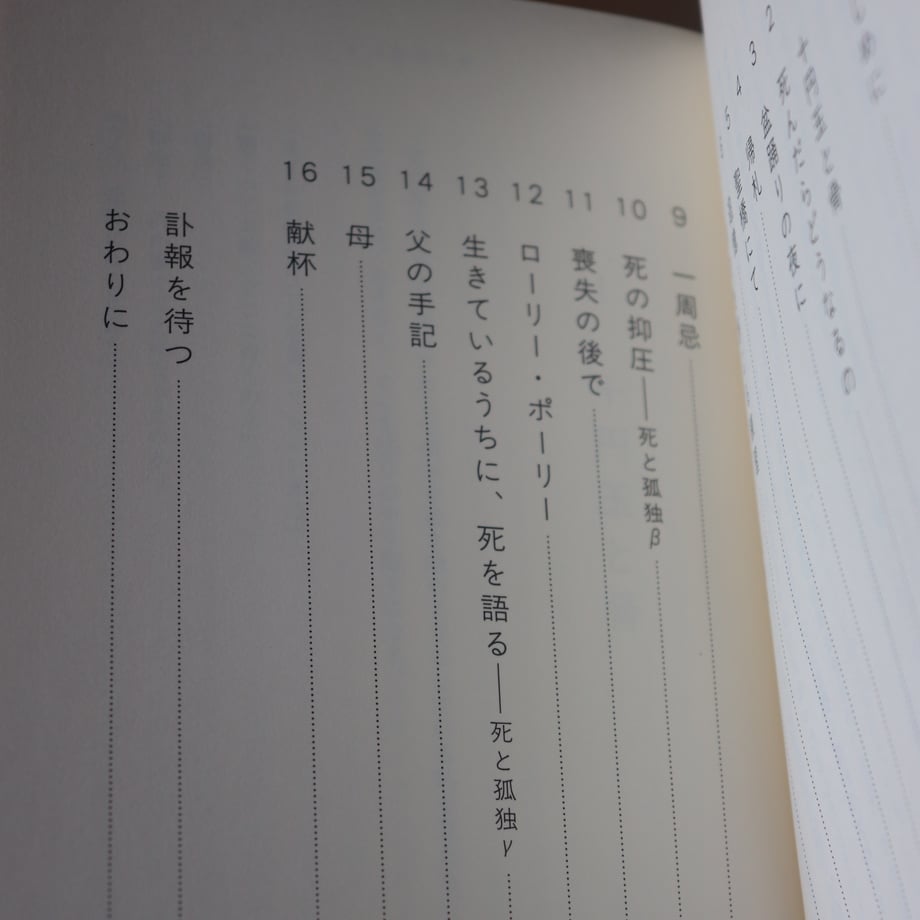 はじめに
十円玉と毒
死んだらどうなるの
2 盆踊りの夜に
3 帰れ
4
5
9 一周忌
10 死の抑圧――死と孤独β
11 喪失の後で
12 ローリー・ポーリー
13 生きているうちに、死を語る――死と孤独γ
14 父の手記
15 母
16 献杯
訃報を待つ
おわりに